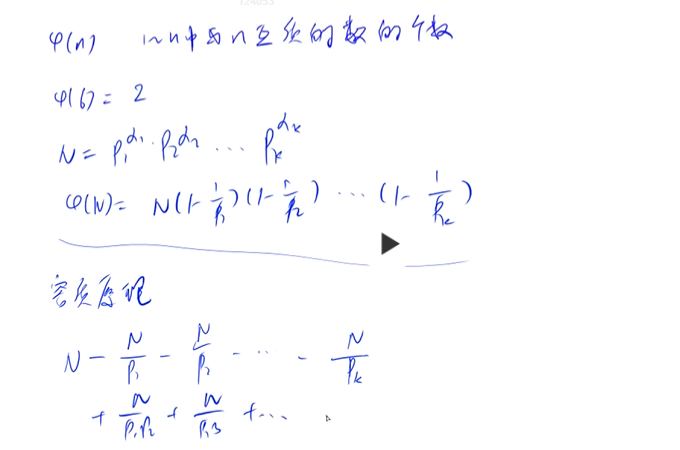 φ(n) 1~n中与n互质的数的个数
φ(6) = 2
N = p₁^α₁ · p₂^α₂ ... pₖ^αₖ
φ(N) = N(1-1/p₁)(1-1/p₂) ... (1-1/pₖ)
容斥原理
N - N/p₁ - N/p₂ - ... - N/pₖ
+ N/p₁p₂ + N/p₁p₃ + ...